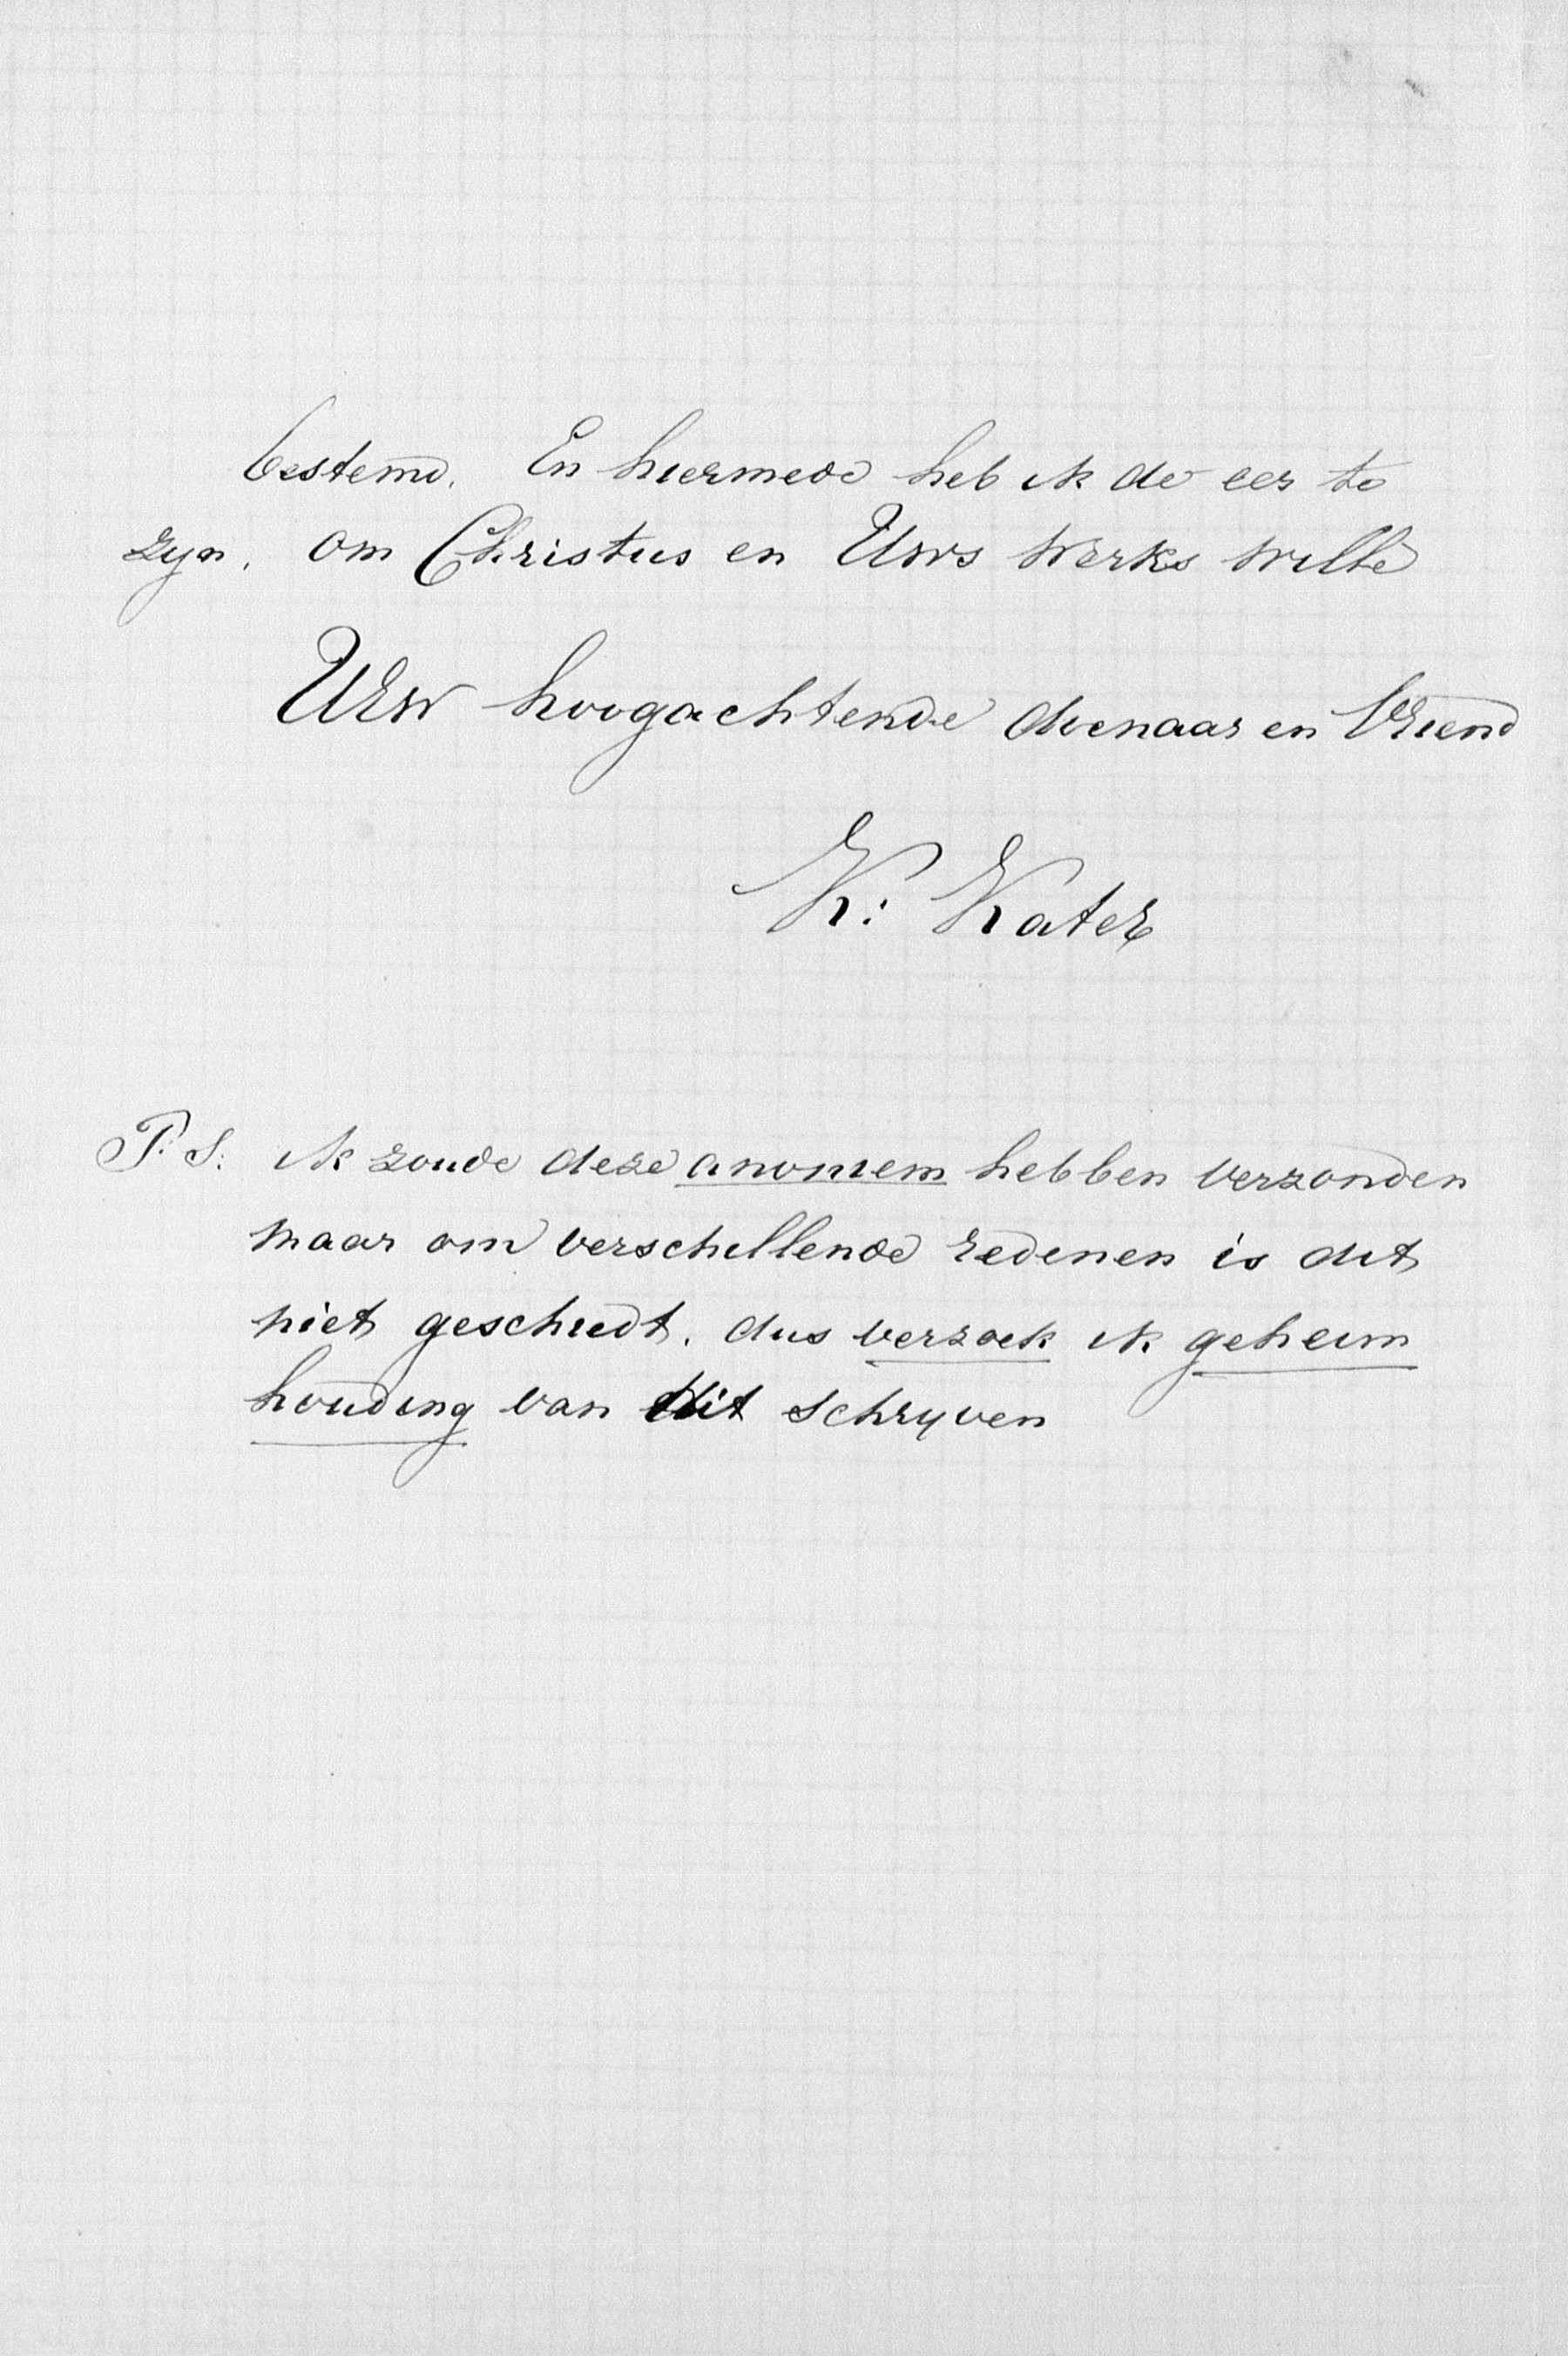 bestemd. En hiermede heb ik de eer te
zyn. om Christus en Uws Werks wille
UEW hoogachtende dienaar en Vriend
K: Kater
P. S: ik zoude deze anoniem hebben verzonden
maar om verschillende redenen is dit
niet geschiedt. dus verzoek ik geheim
houding van dit schryven